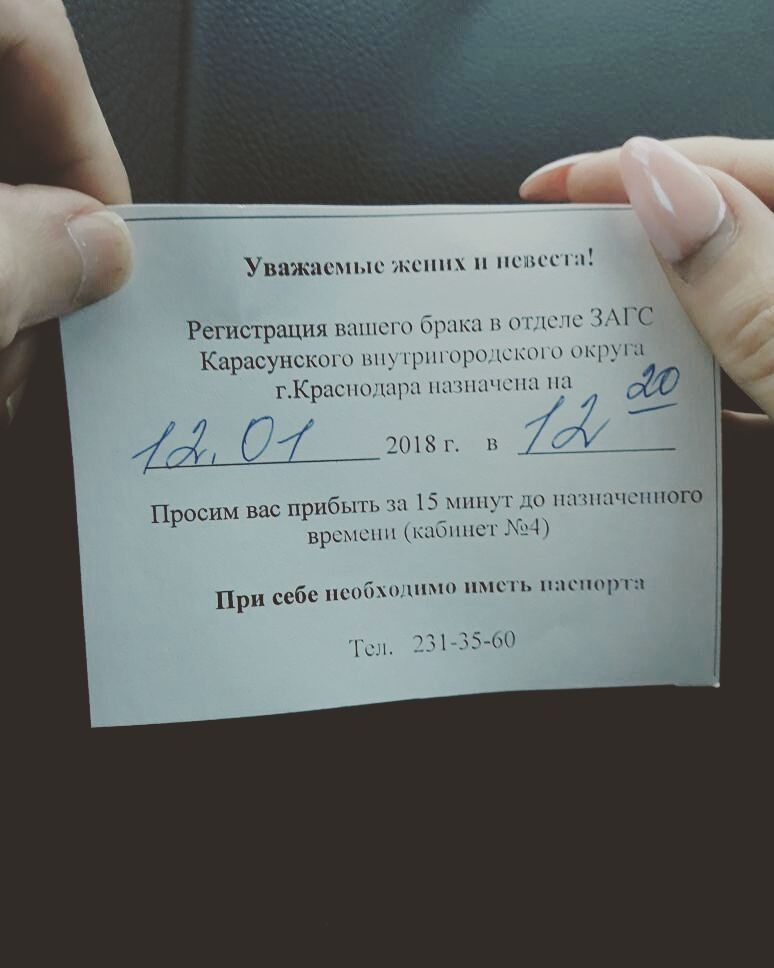 Уважаемые жених и невеста!
Регистрация вашего брака в отделе ЗАГС
Карасунского внутригородского округа
г.Краснодара назначена на
12.01 2018 г. в 12 20
Просим вас прибыть за 15 минут до назначенного
времени (кабинет №4)
При себе необходимо иметь паспорта
Тел. 231-35-60